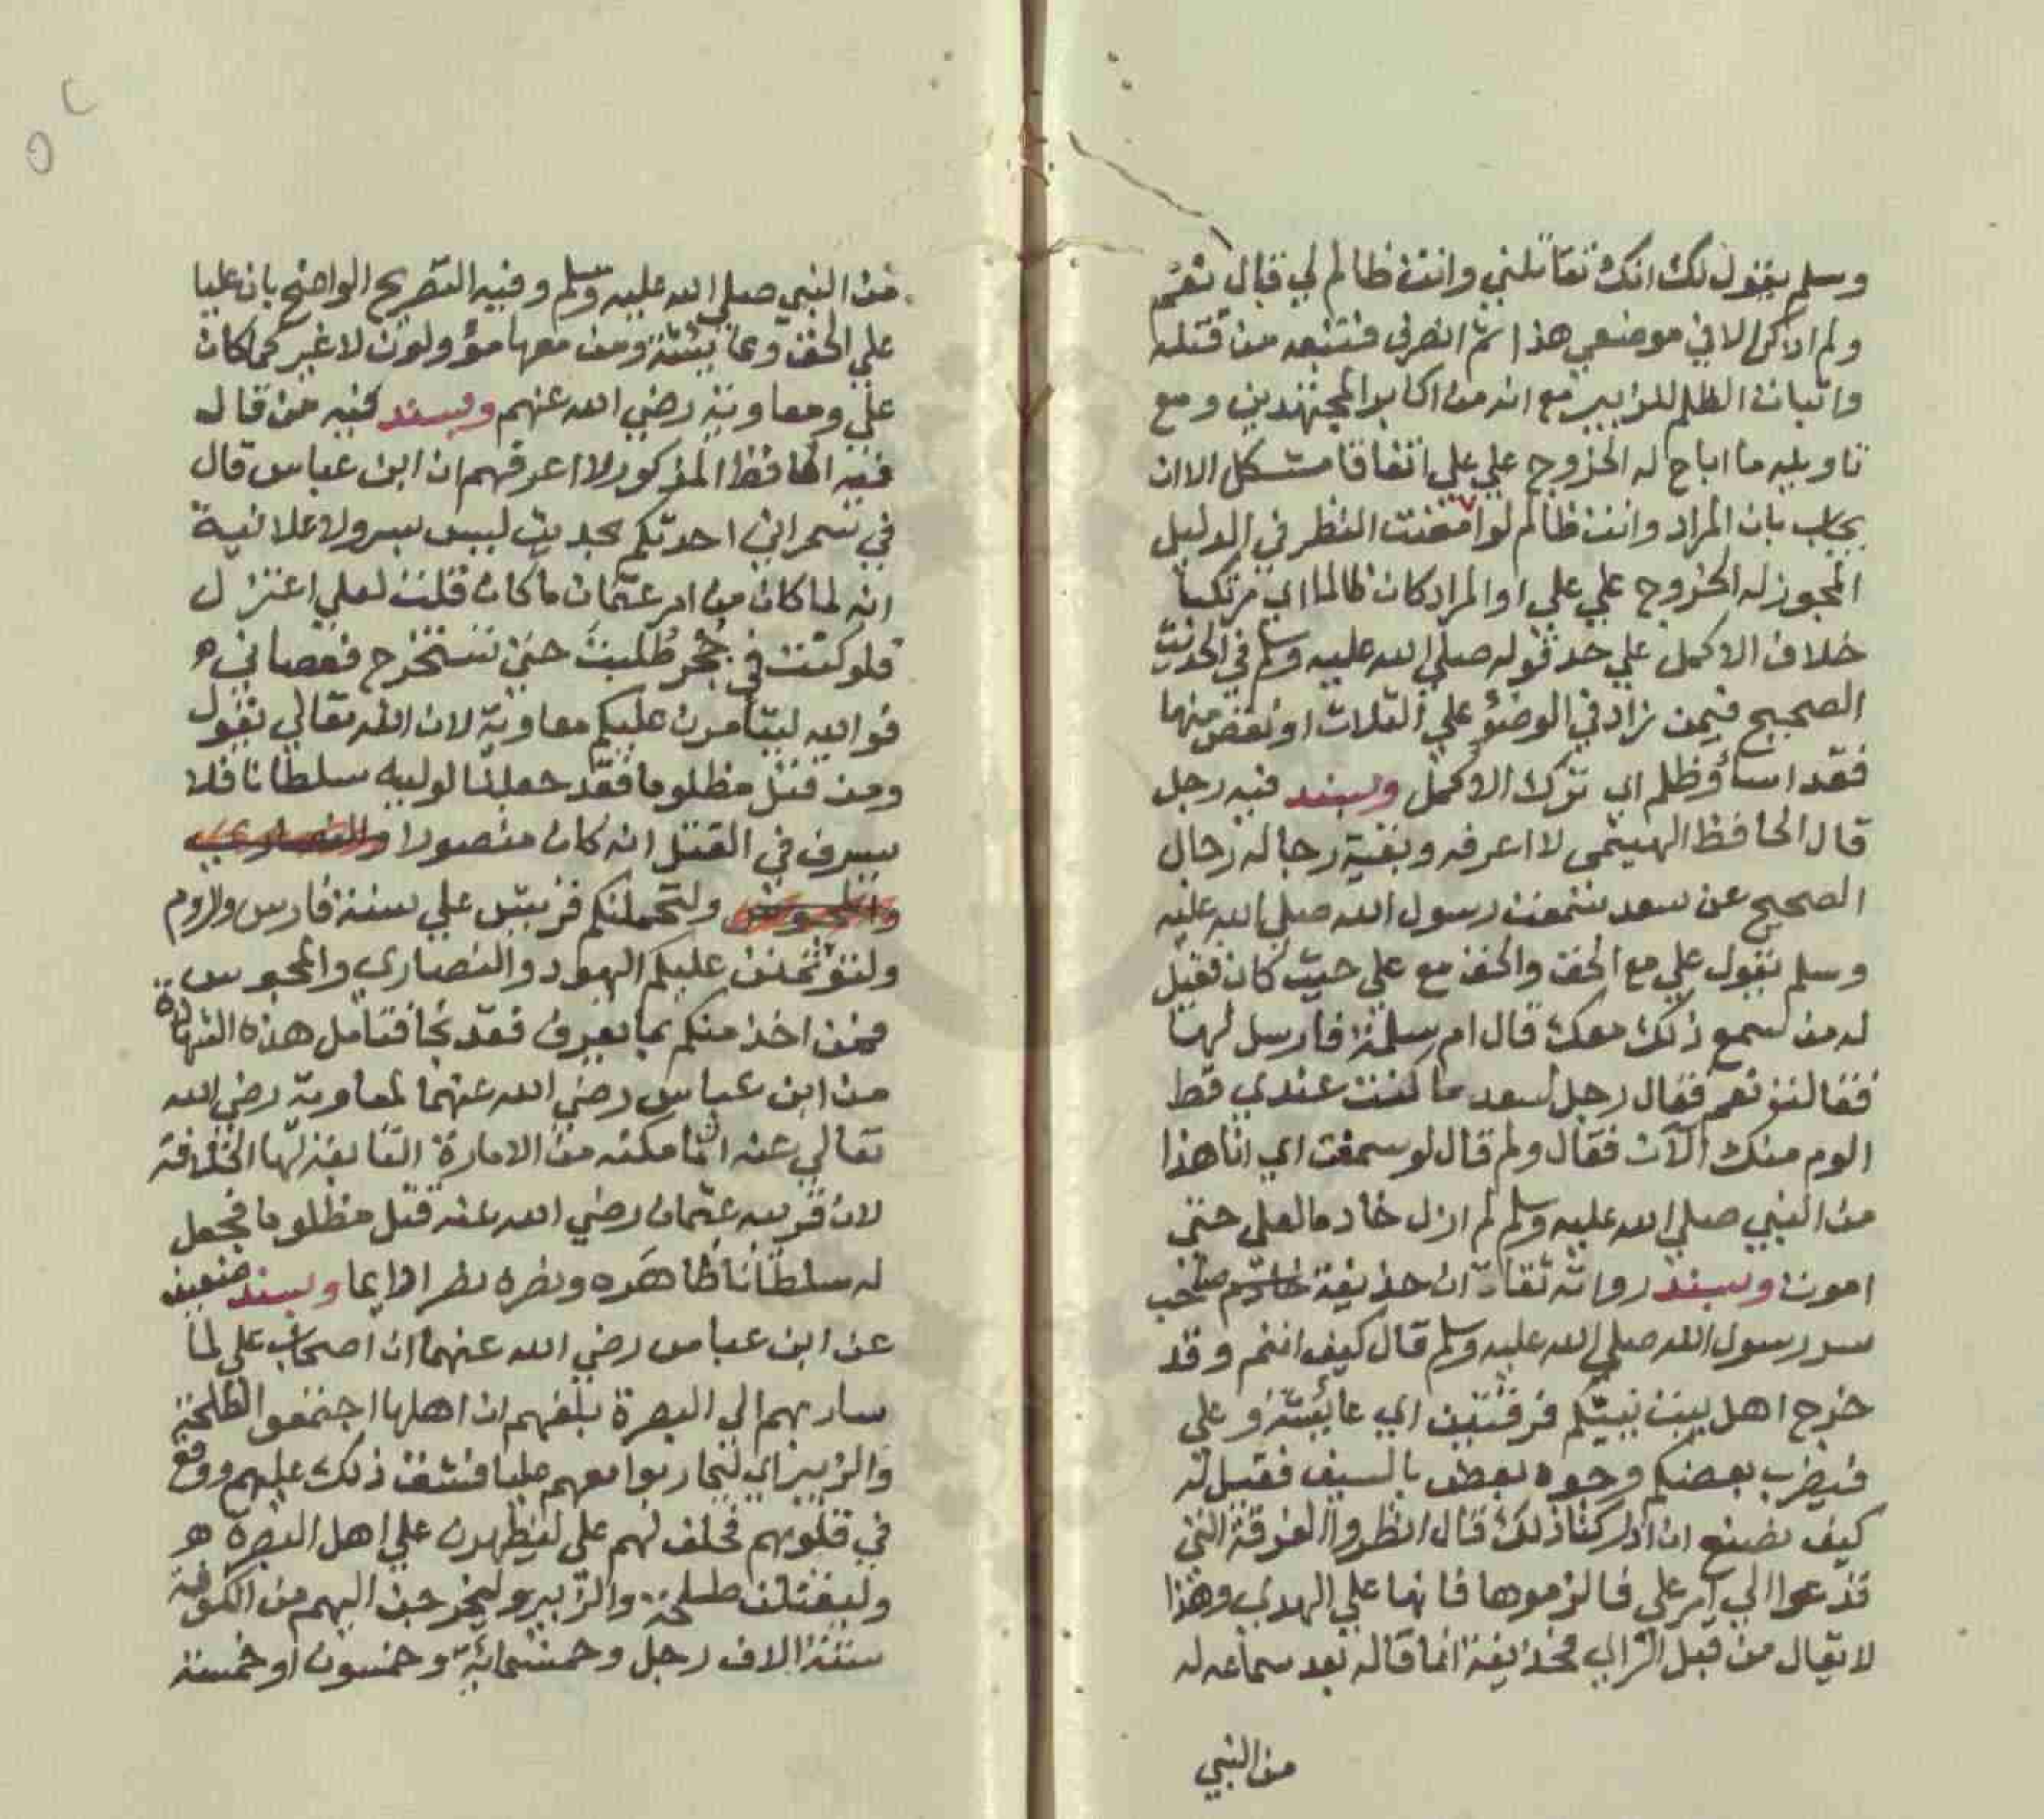 وسلم يقول لك انك تقاتلني وانت ظالم لي قال نعم
ولم اذكر الا في موضعي هذا ثم انصرف فتبعه من قتله
واثبات الظلم للزبير مع انه من اكابر المجتهدين ومع
تاويله ما اباح له الخروج علي علي اتفاقا مشكل الا ان
يجاب بان المراد وانت ظالم لو امعنت النظر في الدليل
المجوز له الخروج علي علي او المراد كان ظالما اي مرتكبا
خلاف الاكمل علي حد قوله صلي الله عليه وسلم في الحديث
الصحيح فيمن زاد في الوضؤ علي الثلاث او نقص منها
فقد اسأ وظلم اي ترك الاكمل وبسند فيه رجل
قال الحافظ الهيتمي لا اعرفه وبقية رجاله رجال
الصحيح عن سعد سمعت رسول الله صلي الله عليه
وسلم يقول علي مع الحق والحق مع علي حيث كان فقيل
له من سمع ذلك معك قال ام سلمة فارسل لها
فقالت نعم فقال رجل لسعد ما كنت عندي قط
الوم منك الآن فقال ولم قال لو سمعت اي انا هذا
من النبي صلي الله عليه وسلم لم ازل خادما لعلي حتي
اموت وبسند رواته ثقات ان حذيفة صاحب
سر رسول الله صلي الله عليه وسلم قال كيف انتم وقد
خرج اهل بيت نبيكم فرقتين اي عايشة وعلي
فيضرب بعضكم وجوه بعض بالسيف فقيل له
كيف نصنع ان ادركنا ذلك قال انظروا الفرقة التي
تدعوا الي امر علي فالزموها فانها علي الهدي وهذا
لا يقال من قبل الراي فحذيفة انما قاله بعد سماعه له
من النبي
من النبي صلي الله عليه وسلم وفيه التصريح الواضح بان عليا
علي الحق وعايشة ومن معها مؤولون لا غير كما كان
علي ومعاوية رضي الله عنهم وبسند فيه من قال
فيه الحافظ المذكور لا اعرفهم ان ابن عباس قال
في سمر اني احدثكم بحديث ليس بسر ولا علانية
انه لما كان من امر عثمان ما كان قلت لعلي اعتزل
فلو كنت في جحر طلبت حتي تستخرج فعصاني
فوالله ليتأمرن عليكم معاوية لان الله تعالي يقول
ومن قتل مظلوما فقد جعلنا لوليه سلطانا فلا
يسرف في القتل انه كان منصورا والنصاري
والمجوس ولتحملنكم قريش علي سنة فارس والروم
ولتؤتمنن عليكم اليهود والنصاري والمجوس
فمن اخذ منكم بما يعرف فقد نجا فتامل هذه الشهادة
من ابن عباس رضي الله عنهما لمعاوية رضي الله
تعالي عنه انما مكنه من الامارة التي الخلافة
لان قريبه عثمان رضي الله عنه قتل مظلوما فجعل
له سلطانا ظاهره ونصره نصرا دايما وبسند ضعيف
عن ابن عباس رضي الله عنهما ان اصحاب علي لما
سار بهم الي البصرة بلغهم ان اهلها اجتمعوا لطلحة
والزبير اي ليحاربوا معهم عليا فشق ذلك عليهم ووقع
في قلوبهم فحلف لهم علي ليظهرن علي اهل البصرة
وليقتلن طلحة والزبير وليخرجن اليهم من الكوفة
ستة الاف رجل وخمسماية وخمسون او خمسة